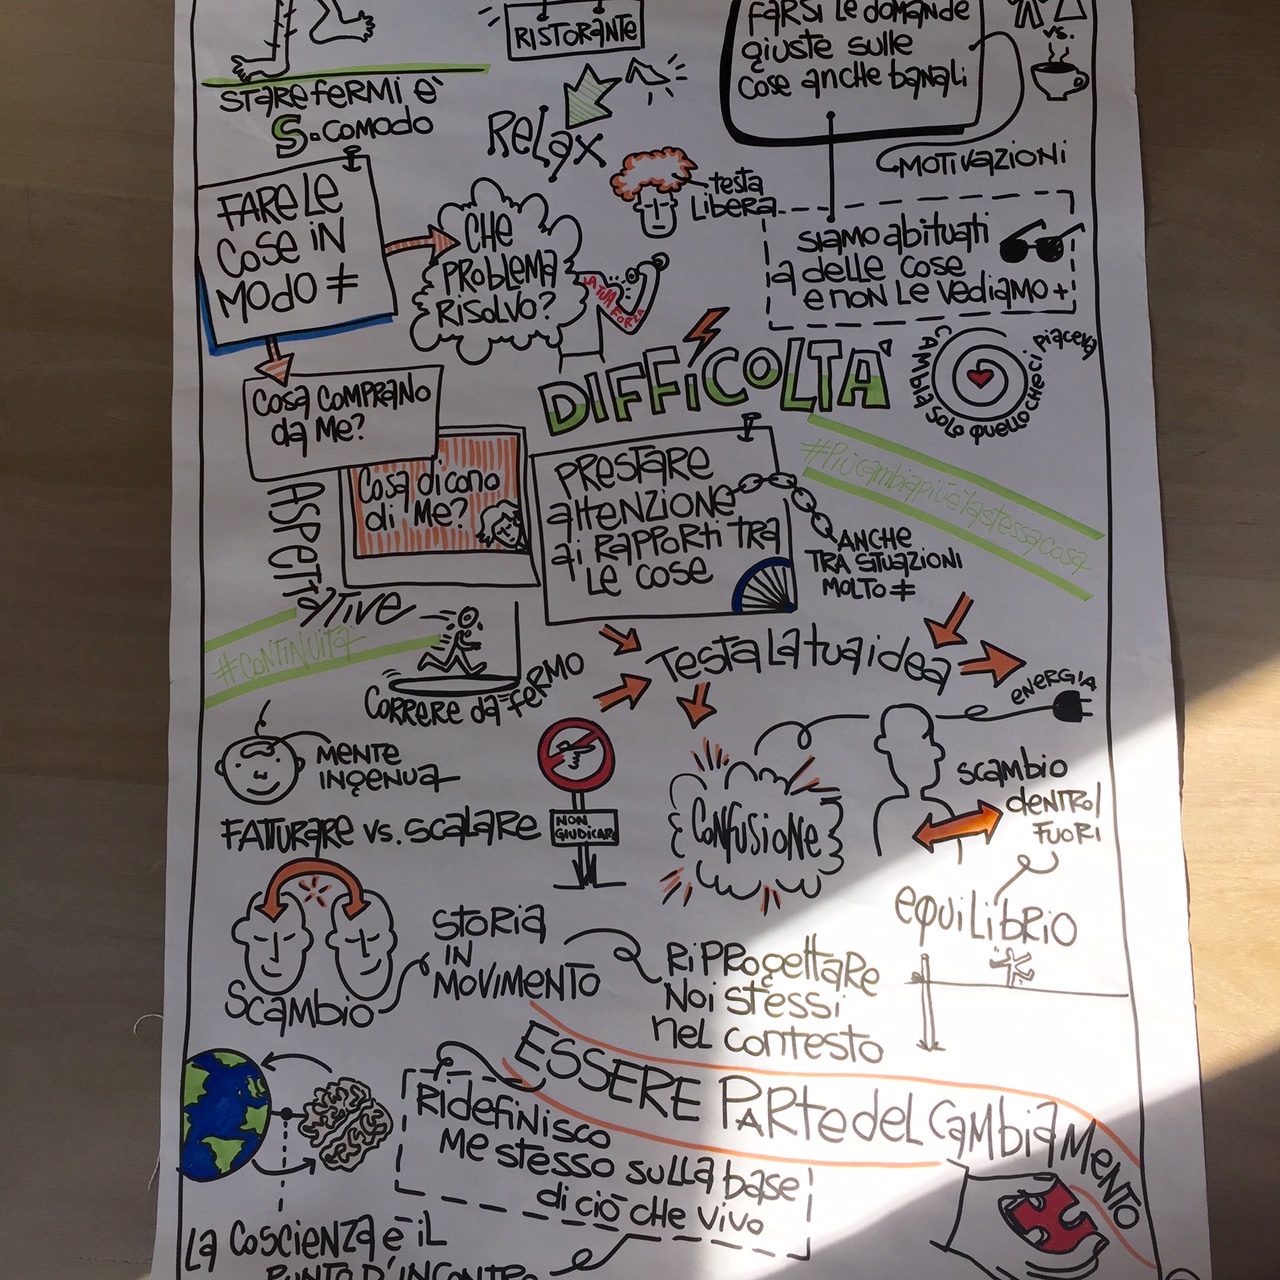 RISTORANTE
FARSI LE DOMANDE
giuste sulle
cose anche banali
vs.
STARE FERMI È
S-COMODO
RELAX
MOTIVAZIONI
testa
LIBERA
FARE LE
COSE IN
MODO ≠
CHE
PROBLEMA
RISOLVO?
LA TUA
FORZA
siamo abituati
a delle cose
e non le vediamo +
CAMBIA SOLO QUELLO CHE CI PIACEVA
DIFFICOLTA'
COSA COMPRANO
da ME?
Cosa dicono
di ME?
ASPETTATIVE
PRESTARE
ATTENZIONE
ai RAPPORTI TRA
LE COSE
ANCHE
TRA SITUAZIONI
MOLTO ≠
#Più cambia più è la stessa cosa
#CONTINUITÀ
CORRERE da FERMO
Testa la tua idea
ENERGIA
MENTE
INGENUA
FATTURARE vs. SCALARE
NON
GIUDICARE
CONFUSIONE
SCAMBIO
DENTRO/
FUORI
EQUILIBRIO
SCAMBIO
STORIA
IN
MOVIMENTO
RIPROGETTARE
NOI STESSI
NEL CONTESTO
ESSERE PARTE DEL CAMBIAMENTO
Ridefinisco
ME STESSO SULLA BASE
di ciò CHE VIVO
LA COSCIENZA È IL
PUNTO D'INCONTRO